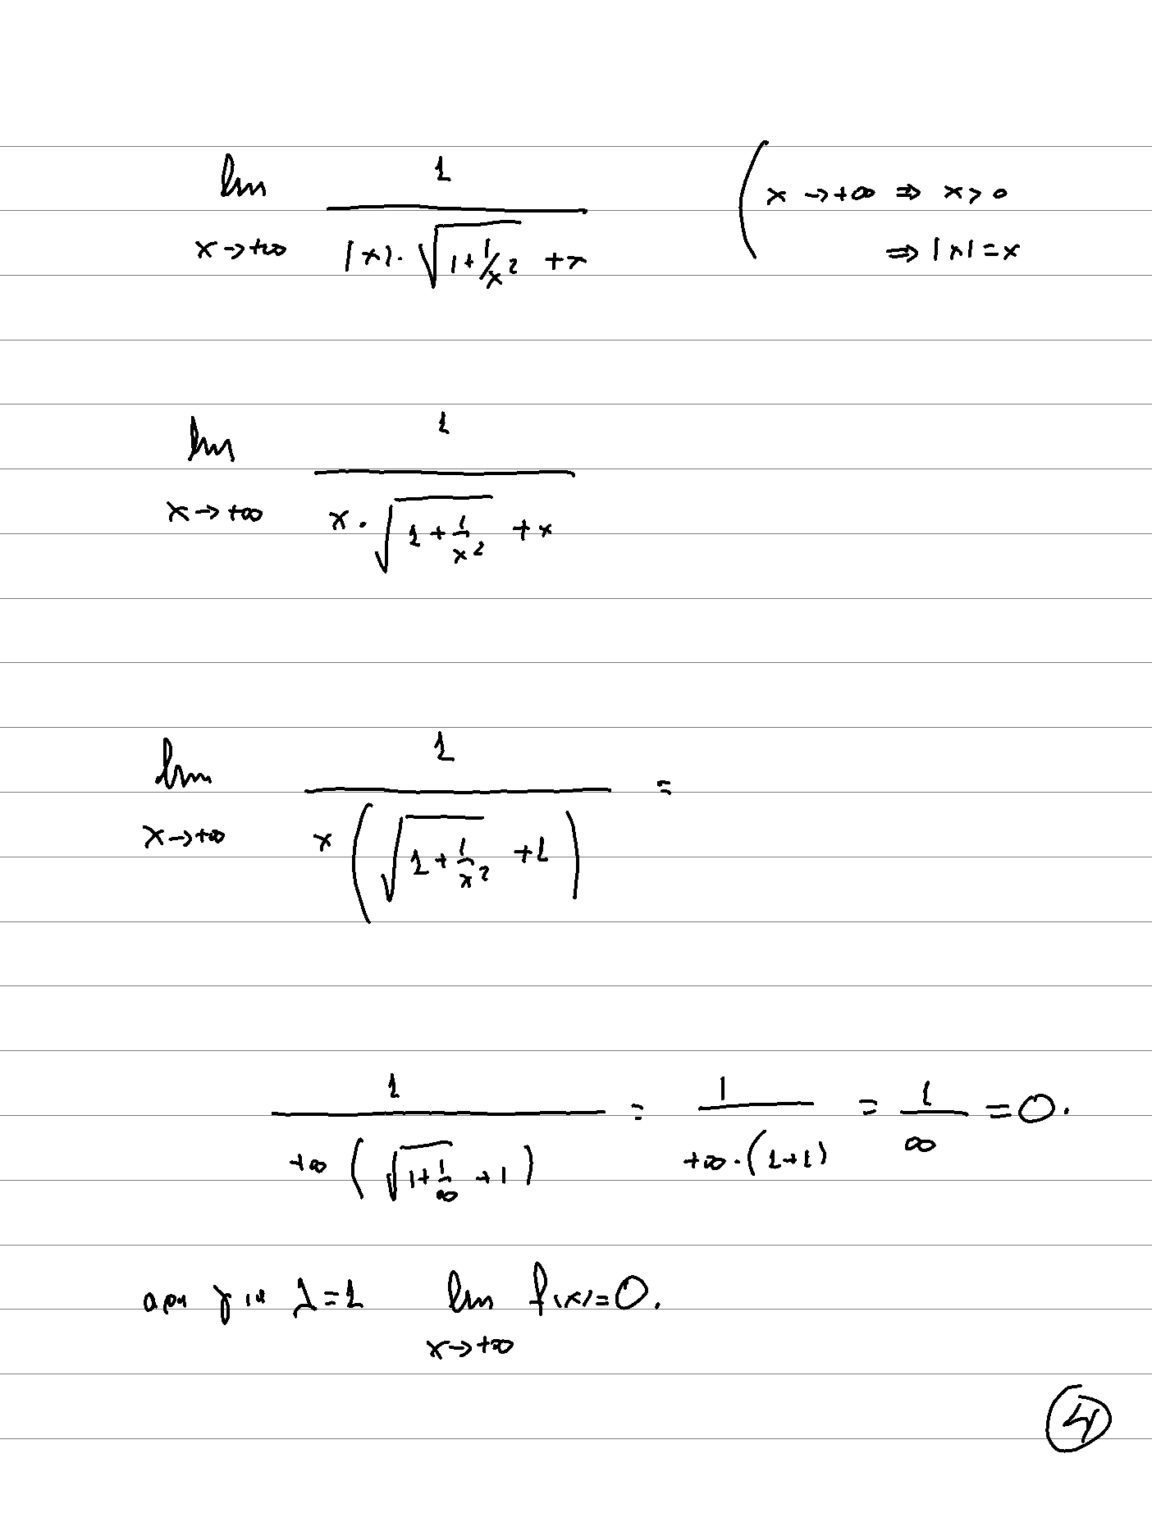 lim x→+∞ 1 / (|x|·√(1+1/x²) + x) ( x→+∞ ⇒ x>0
⇒ |x|=x
lim x→+∞ 1 / (x·√(1+1/x²) + x)
lim x→+∞ 1 / (x(√(1+1/x²) + 1)) =
1 / (+∞(√(1+1/∞) + 1)) = 1 / (+∞·(1+1)) = 1/∞ = 0.
αρα για λ=1 lim x→+∞ f(x)=0.
4